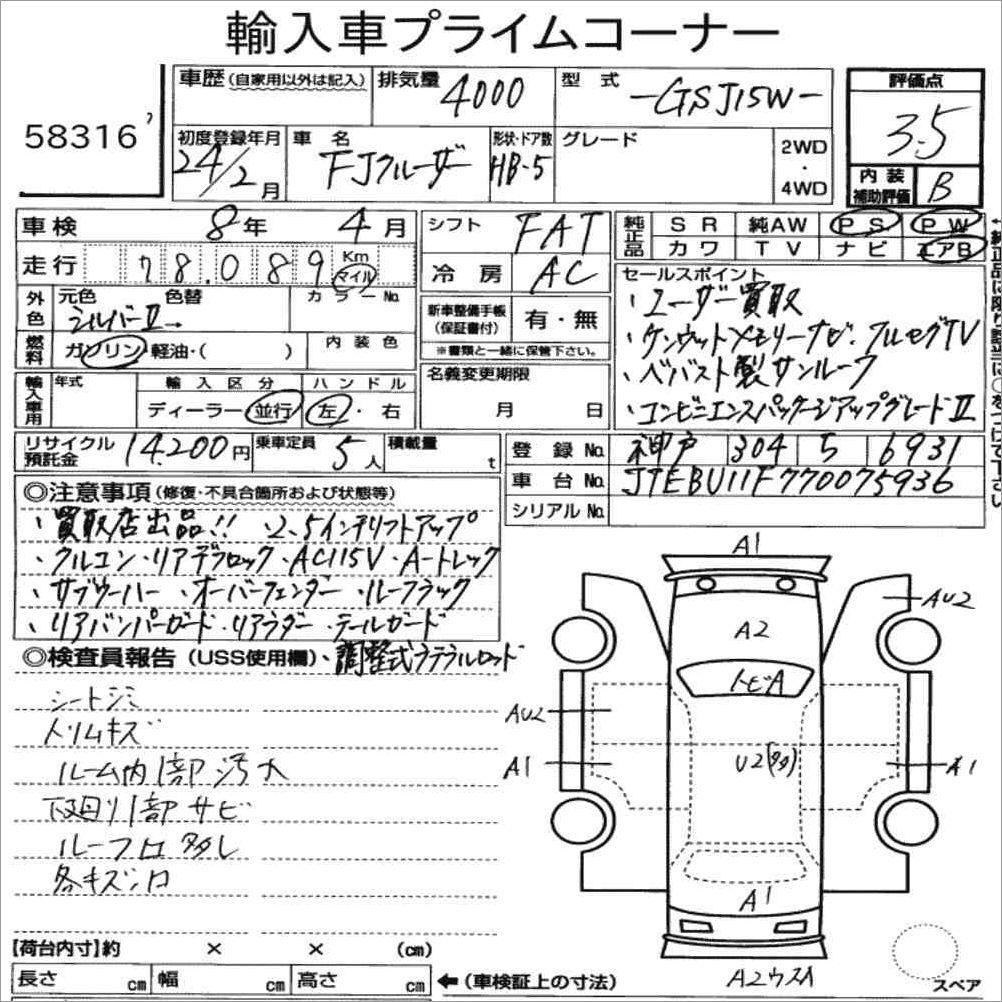 輸入車プライムコーナー
58316
車歴(自家用以外は記入) 排気量 4000 型式 -GSJ15W- 評価点 3.5
初度登録年月 24/2月 車名 FJクルーザー 形状・ドア数 HB-5 グレード 2WD・4WD 内装補助評価 B
車検 8年 4月 シフト FAT 純正品 SR 純AW PS PW
走行 78,089 Km マイル 冷房 AC カワ TV ナビ エアB
外色 元色 色替 カラーNo. シルバーII→
新車整備手帳(保証書付) 有・無
※書類と一緒に保管下さい。
燃料 ガソリン・軽油・( ) 内装色
輸入車用 年式 輸入区分 ハンドル
ディーラー・並行 左・右
名義変更期限 月 日
セールスポイント
・ユーザー買取
・ケンウッドメモリーナビ・フルセグTV
・ベバスト製サンルーフ
・コンビニエンスパッケージアップグレードII
リサイクル預託金 14,200円 乗車定員 5人 積載量 t
登録No. 神戸 304 5 6931
車台No. JTEBU11F770075936
シリアルNo.
◎注意事項(修復・不具合箇所および状態等)
・買取店出品!! ・2.5インチリフトアップ
・クルコン・リアデフロック・AC115V・A-トレック
・サブウーハー ・オーバーフェンダー ・ルーフラック
・リアバンパーガード・リアラダー・テールガード
◎検査員報告(USS使用欄)・調整式ラテラルロッド
シートシミ
トリムキズ
ルーム内1部汚大
下廻り1部サビ
ルーフロ多し
各キズ凹
A1
AU2
A2
トビA
AU2
A1
U2(多)
A1
A1
A2ウスA
スペア
【荷台内寸】約 × × (cm)
長さ cm 幅 cm 高さ cm ←(車検証上の寸法)